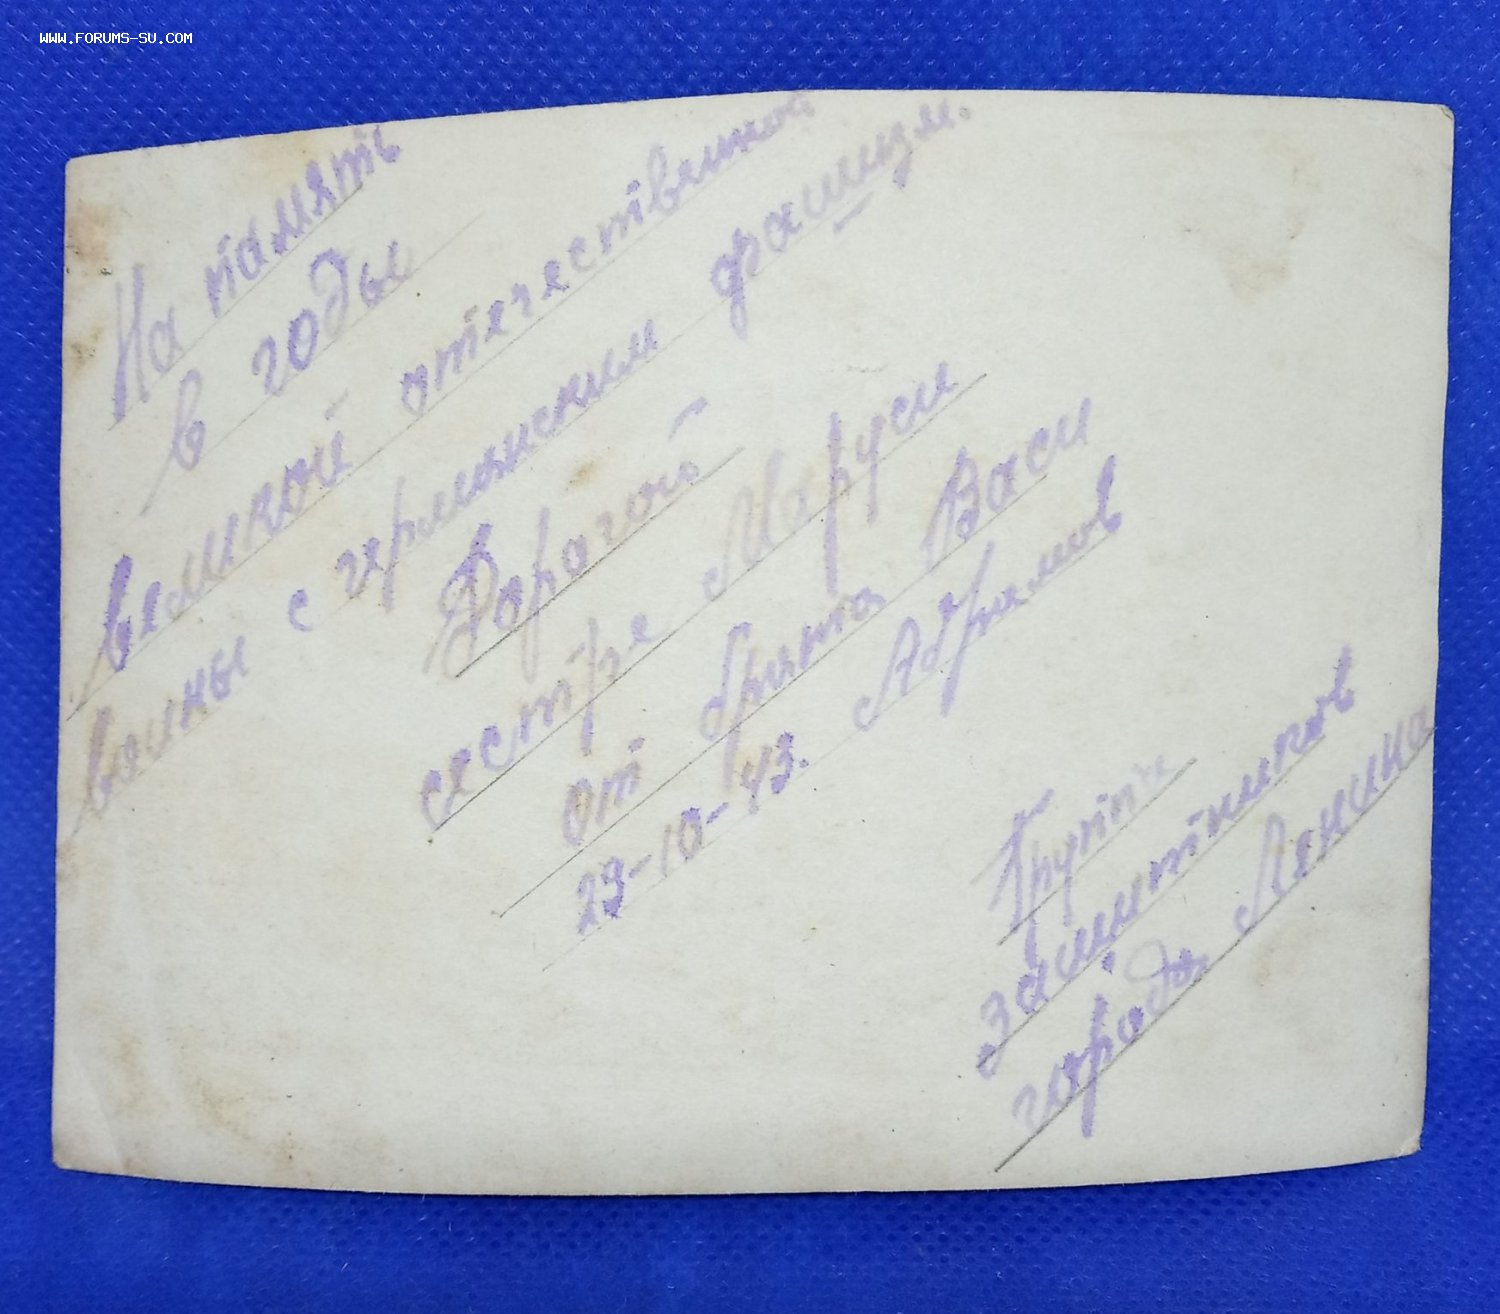 WWW.FORUMS-SU.COM
На память
в годы
великой отечественной
воины с германским фашизм.
Дорогой
сестре Маруси
от брата Васи
29-10-43.
Группа
защитников
города Ленина